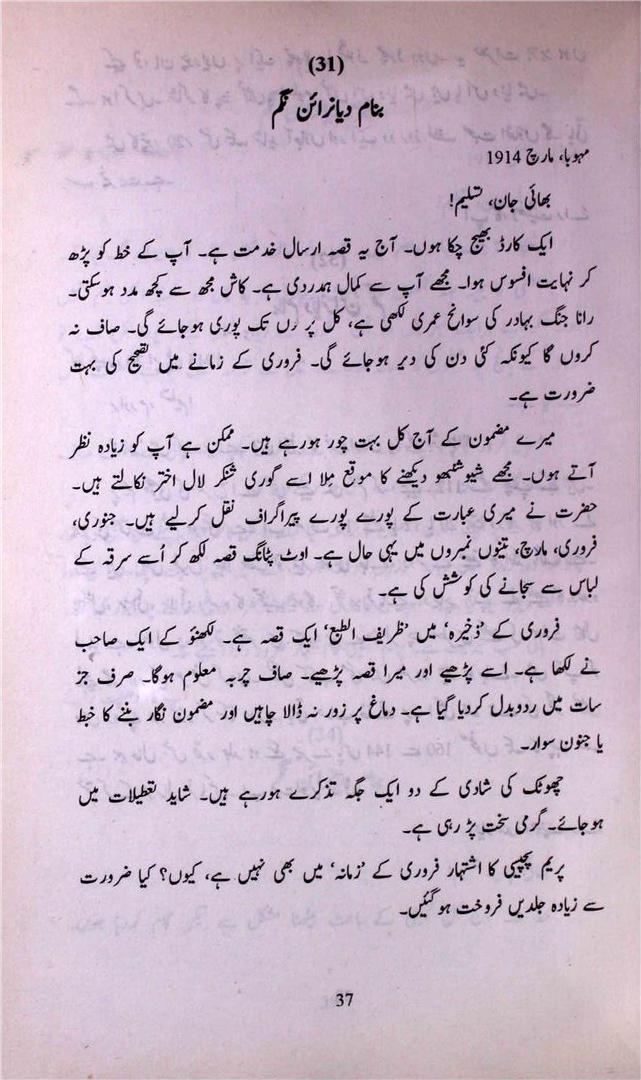 (31)
بنام دیانرائن نگم
مہوبا، مارچ 1914
بھائی جان، تسلیم!
ایک کارڈ بھیج چکا ہوں۔ آج یہ قصہ ارسال خدمت ہے۔ آپ کے خط کو پڑھ
کر نہایت افسوس ہوا۔ مجھے آپ سے کمال ہمدردی ہے۔ کاش مجھ سے کچھ مدد ہوسکتی۔
رانا جنگ بہادر کی سوانح عمری لکھی ہے، کل پرسوں تک پوری ہوجائے گی۔ صاف نہ
کروں گا کیونکہ کئی دن کی دیر ہوجائے گی۔ فروری کے زمانے میں تصحیح کی بہت
ضرورت ہے۔
میرے مضمون کے آج کل بہت چور ہورہے ہیں۔ ممکن ہے آپ کو زیادہ نظر
آتے ہوں۔ مجھے شیوشمبھو دیکھنے کا موقع مِلا اسے گوری شنکر لال اختر نکالتے ہیں۔
حضرت نے میری عبارت کے پورے پورے پیراگراف نقل کرلیے ہیں۔ جنوری،
فروری، مارچ، تینوں نمبروں میں یہی حال ہے۔ اوٹ پٹانگ قصہ لکھ کر اُسے سرقہ کے
لباس سے سجانے کی کوشش کی ہے۔
فروری کے ’ذخیرہ‘ میں ’ظریف الطبع‘ ایک قصہ ہے۔ لکھنؤ کے ایک صاحب
نے لکھا ہے۔ اسے پڑھیے اور میرا قصہ پڑھیے۔ صاف چربہ معلوم ہوگا۔ صرف جز
سات میں ردوبدل کردیا گیا ہے۔ دماغ پر زور نہ ڈالا چاہیں اور مضمون نگار بننے کا خبط
یا جنون سوار۔
چھوٹک کی شادی کے دو ایک جگہ تذکرے ہورہے ہیں۔ شاید تعطیلات میں
ہوجائے۔ گرمی سخت پڑ رہی ہے۔
پریم پچیسی کا اشتہار فروری کے ’زمانہ‘ میں بھی نہیں ہے، کیوں؟ کیا ضرورت
سے زیادہ جلدیں فروخت ہوگئیں۔
37